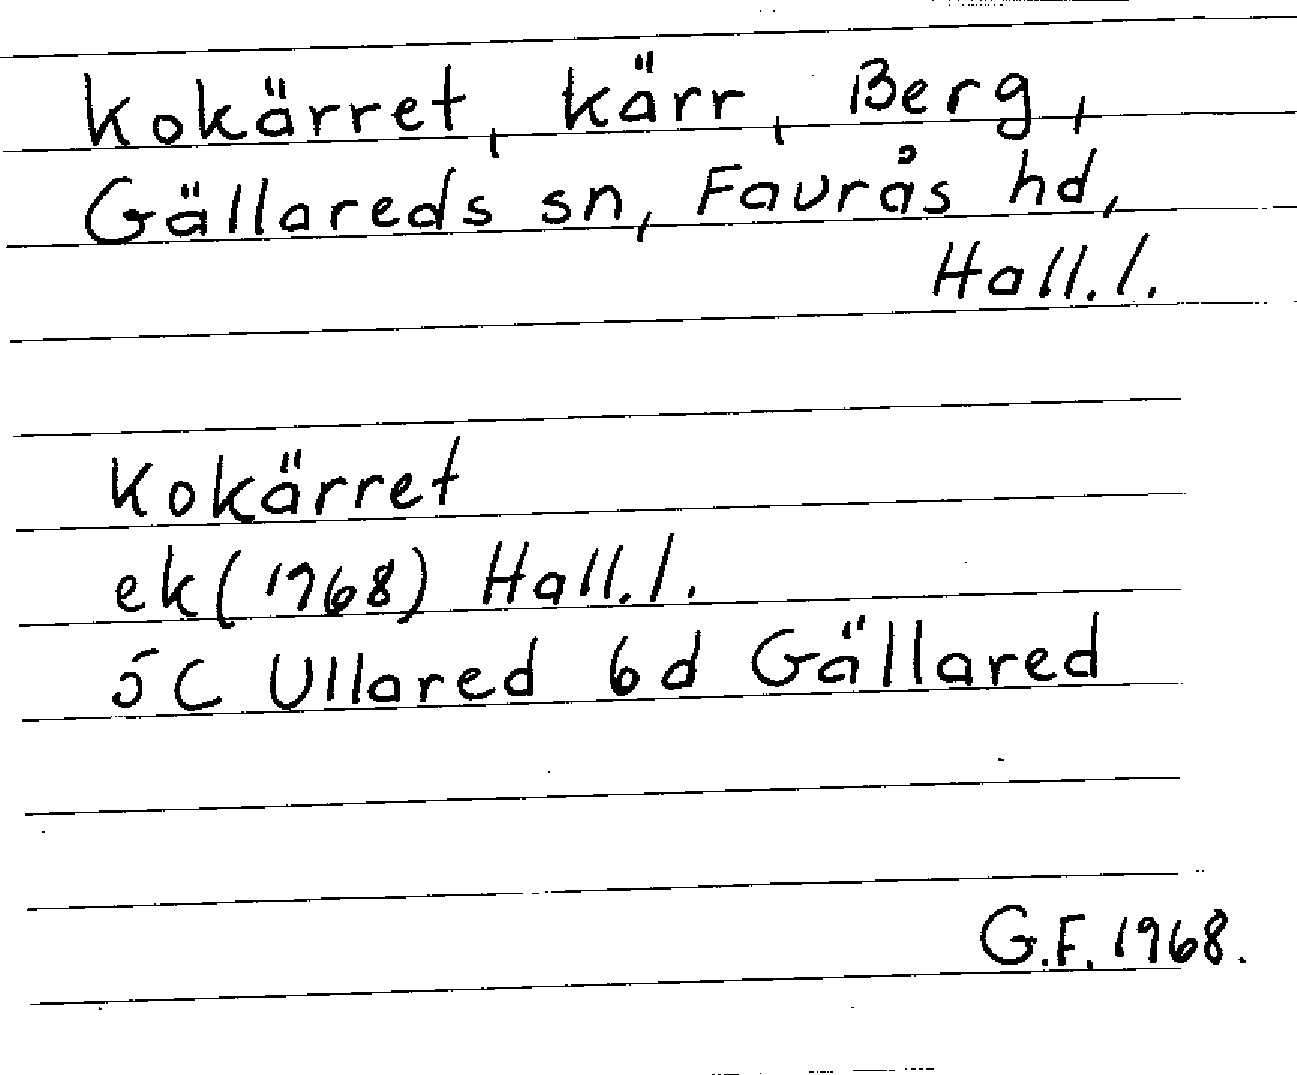 Kokärret, kärr, Berg,
Gällareds sn, Faurås hd,
Hall.l.
Kokärret
ek(1768) Hall.l.
5C Ullared 6d Gällared
G.F. 1968.